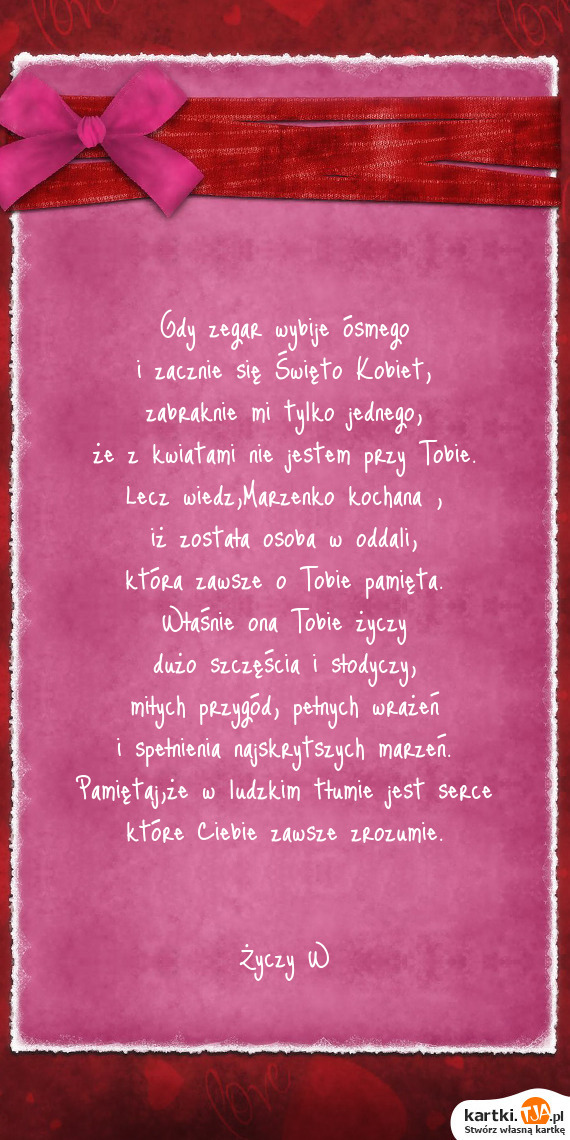 love
love
Gdy zegar wybije ósmego
i zacznie się Święto Kobiet,
zabraknie mi tylko jednego,
że z kwiatami nie jestem przy Tobie.
Lecz wiedz,Marzenko kochana ,
iż została osoba w oddali,
która zawsze o Tobie pamięta.
Właśnie ona Tobie życzy
dużo szczęścia i słodyczy,
miłych przygód, pełnych wrażeń
i spełnienia najskrytszych marzeń.
Pamiętaj,że w ludzkim tłumie jest serce
które Ciebie zawsze zrozumie.
Życzy W
love
kartki.TJA.pl
Stwórz własną kartkę